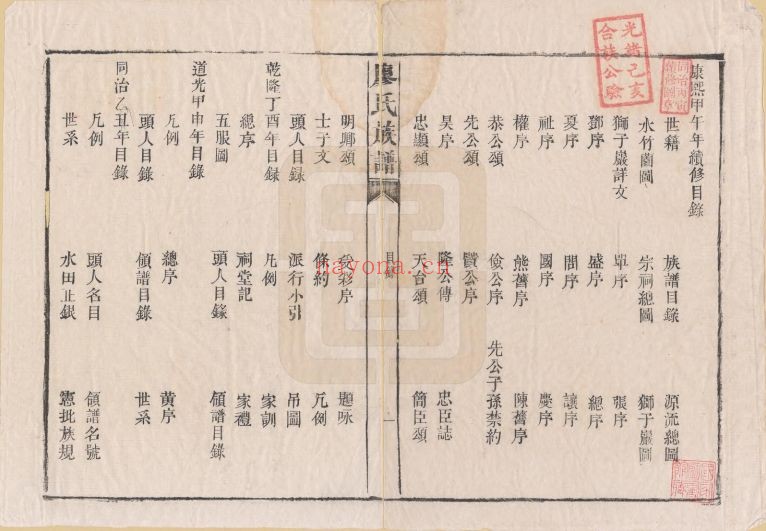 康熙甲午年續修目錄
世籍 族譜目錄 源流總圖
水竹園圖 宗祠總圖 獅子巖圖
獅子巖詳文 單序 張序
鄧序 盛序 總序
夏序 閻序 讓序
祉序 國序 慶序
權序 熊舊序 陳舊序
恭公頌 儉公序 先公子孫禁約
先公頌 賢公序
昊序 隆公傳 忠臣誌
忠顯頌 天台頌 簡臣頌
廖氏族譜
目錄
一
明卿頌 榖彩序 題咏
士子文 條約 凡例
頭人目錄 派行小引 吊圖
乾隆丁酉年目錄
總序 凡例 家訓
五服圖 祠堂記 家禮
頭人目錄 領譜目錄
道光甲申年目錄
凡例 總序 黃序
頭人目錄 領譜目錄 世系
同治乙丑年目錄
凡例 頭人名目 領譜名號
世系 水田正銀 憲批族規
光緒己亥
合族公驗
nayona.cn